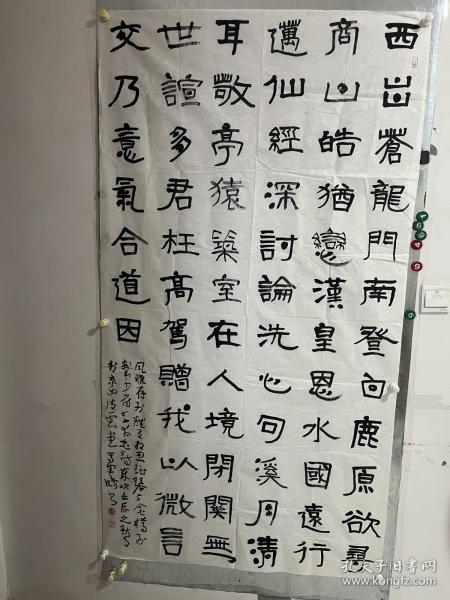 西出蒼龍門南登白鹿原欲尋
商山皓猶戀漢皇恩水國遠行
邁仙經深討論洗心句溪月清
耳敬亭猿築室在人境閉關無
世諠多君枉高駕贈我以微言
交乃意氣合道因
風雅存別離有相思瑤瑟與金樽
孔夫子旧书网